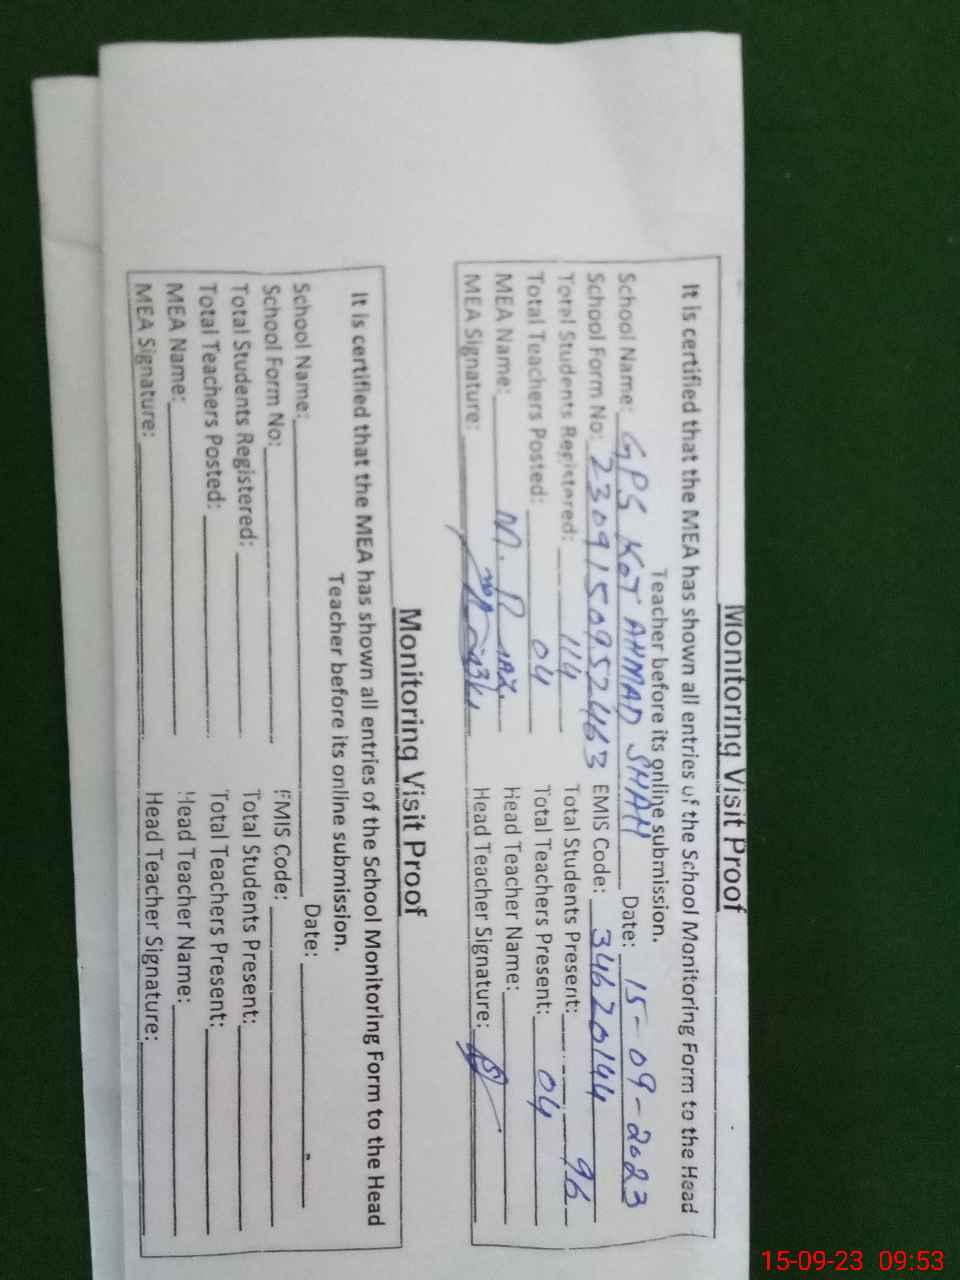 Monitoring Visit Proof
It is certified that the MEA has shown all entries of the School Monitoring Form to the Head
Teacher before its online submission.
School Name: GPS KOT AHMAD SHAH Date: 15-09-2023
School Form No: 2309150952463 EMIS Code: 34620144
Total Students Registered: 114 Total Students Present: 96
Total Teachers Posted: 04 Total Teachers Present: 04
MEA Name: M. Head Teacher Name:
MEA Signature: Head Teacher Signature:
Monitoring Visit Proof
It is certified that the MEA has shown all entries of the School Monitoring Form to the Head
Teacher before its online submission.
School Name: Date:
School Form No: EMIS Code:
Total Students Registered: Total Students Present:
Total Teachers Posted: Total Teachers Present:
MEA Name: Head Teacher Name:
MEA Signature: Head Teacher Signature:
15-09-23 09:53